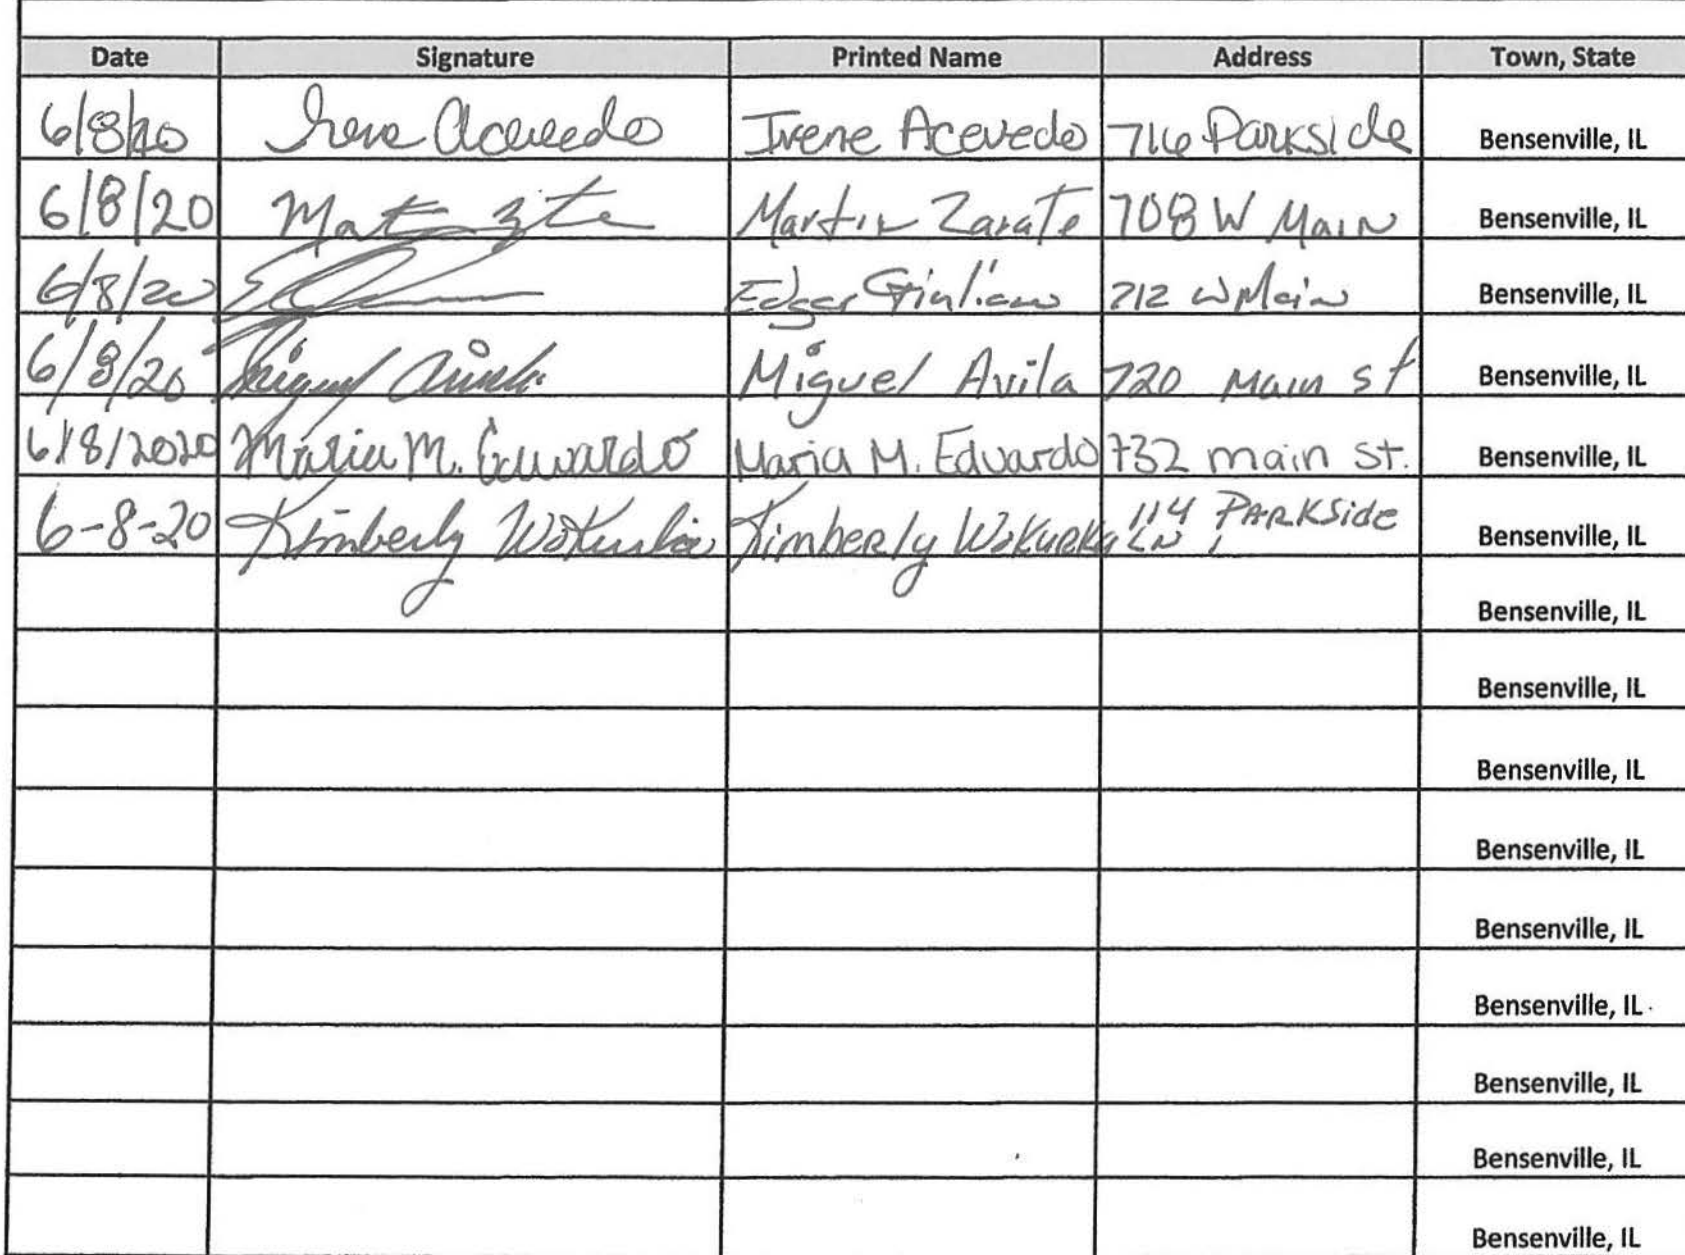 Date Signature Printed Name Address Town, State
6/8/20 Irene Acevedo Irene Acevedo 716 Parkside Bensenville, IL
6/8/20 Martin Zarate 708 W Main Bensenville, IL
6/8/20 Edgar 712 W Main Bensenville, IL
6/8/20 Miguel Avila Miguel Avila 720 Main st Bensenville, IL
6/8/2020 Maria M. Eduardo Maria M. Eduardo 732 main st. Bensenville, IL
6-8-20 Kimberly Wokurka Kimberly Wokurka 114 PARKSide LN Bensenville, IL
Bensenville, IL
Bensenville, IL
Bensenville, IL
Bensenville, IL
Bensenville, IL
Bensenville, IL
Bensenville, IL
Bensenville, IL
Bensenville, IL